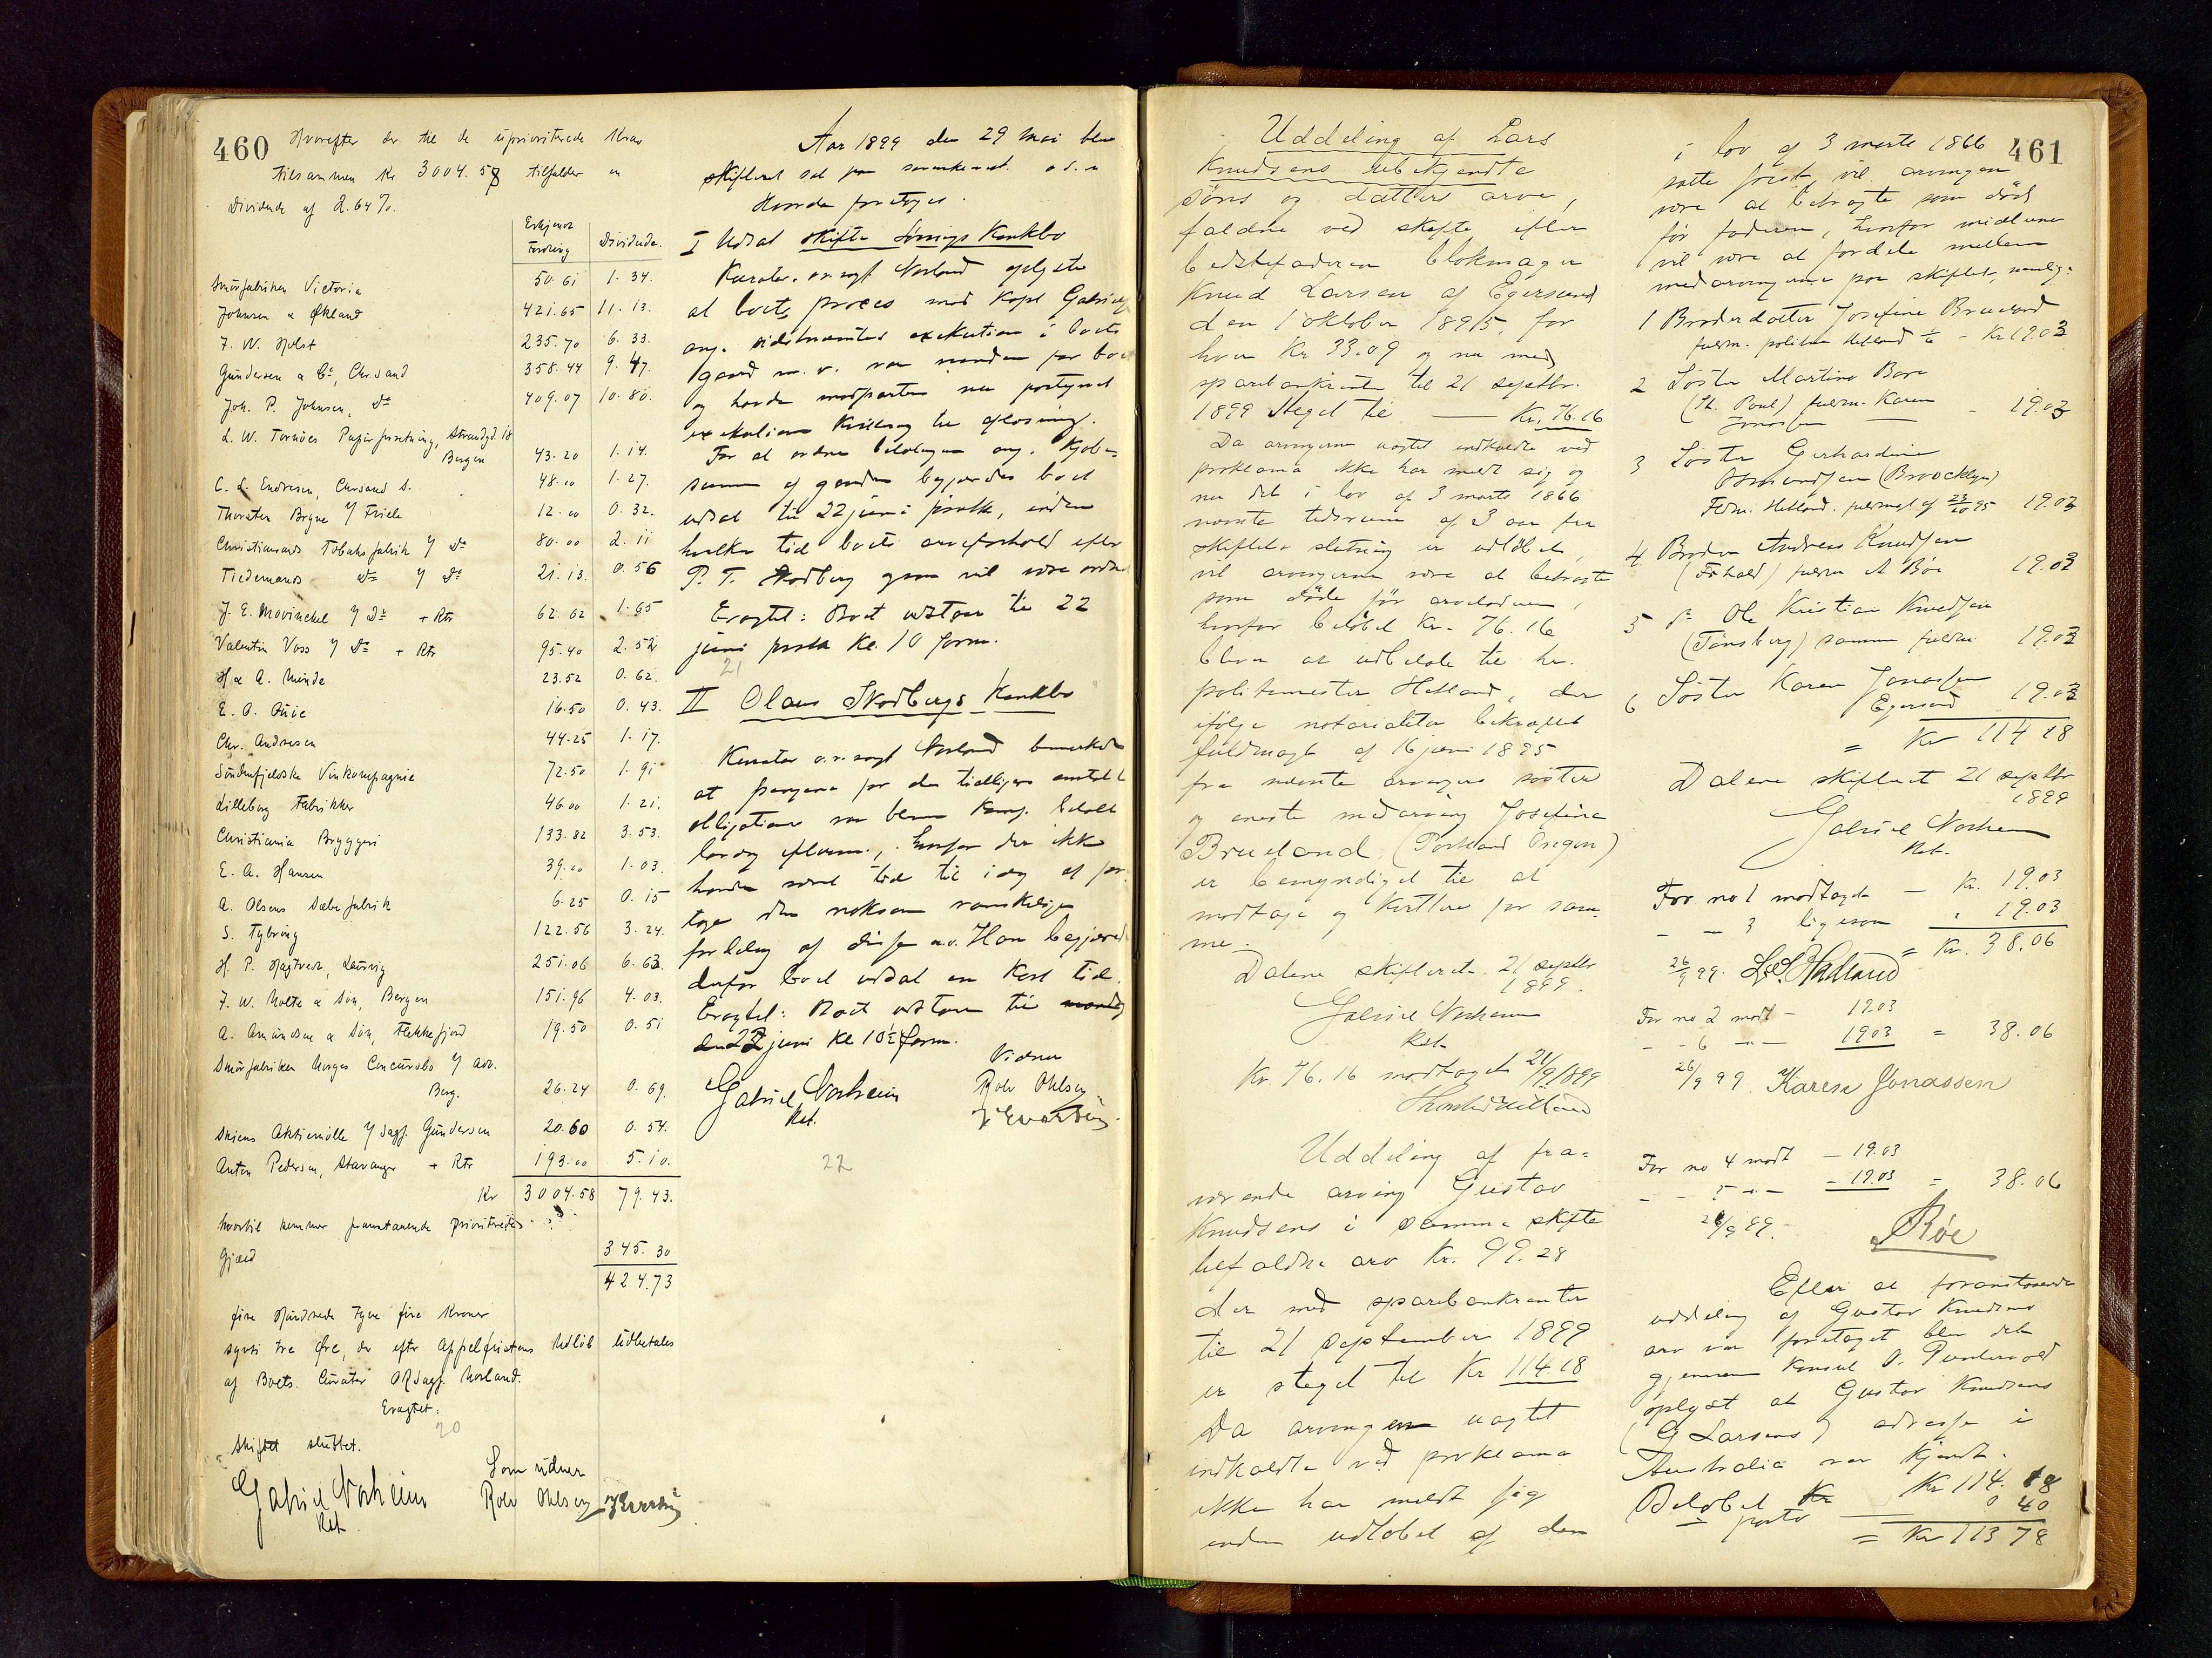 460
Hvorefter der til de upriviterede Krav
tilsammen Kr 3004.58 tilfalder en
Dividende af 2.64 %.
Erkjendt Fordring Dividende.
Smörfabriken Victoria 50.61 1.34.
Johnsen & Økland 421.65 11.13.
F. W. Holst 235.70 6.33.
Gundersen & Co, Chrsand 358.44 9.47.
Joh. P. Johnsen, do 409.07 10.80.
L. W. Tornöes Papirforretning, Strandgd. 18
Bergen 43.20 1.14.
C. L. Endresen, Chrsand S. 48.00 1.27.
Thorsten Bryne 12.00 0.32.
Christiansands Tobaksfabrik 80.00 2.11
Tiedemands 21.13. 0.56
J. E. Mowinckel + Rtr 62.62 1.65
Valentin Voss + Rtr 95.40 2.52
H & A. Minde 23.52 0.62.
E. O. 16.50 0.43.
Chr. Andresen 44.25 1.17.
Söndenfjeldske Vinkompagnie 72.50 1.91
Lilleborg Fabrikker 46.00 1.21.
Christiania Bryggeri 133.82 3.53.
E. A. Hansen 39.00 1.03.
A. Olsens Sæbefabrik 6.25 0.15
S. Tybring 122.56 3.24.
H. P. Hagtvedt, Laurvig 251.06 6.63.
F. W. Holte & Sön, Bergen 151.96 4.03.
A. Amundsen & Sön, Flekkefjord 19.50 0.51
Smörfabriken Norges Concursbo
Berg. 26.24 0.69.
Skiens Aktiemölle Sagf. Gundersen 20.60 0.54.
Anton Pedersen, Stavanger + Rtr 193.00 5.10.
Kr 3004.58 79.43.
hvortil kommer foranstaaende prioriterede
Gjæld 345.30
424.73
fire Hundrede tyve fire Kroner
sytti tre Øre, der efter Appelfristens Udløb udbetales
af Boets Curator ORsagf. Norland.
Eragtet:
20
Skiftet sluttet.
Gabriel Norheim
Kst.
Som vidner
Rolv Ohlsen
Aar 1899 den 29 Mai blev
skifteret sat
Hvorda foretoges.
I Udsat skifte Konkbo
Kurator o.r.sagf Norland oplyste
at boets proces mod Kapt Gabrielsen
ang. execution i boets
gaard m. v. var vunden for boet
og havde modparten nu
executions til aflösning.
For at ordne ang. Kjöbe-
summen af gaarden begjærdes boet
udsat til 22 juni förstk., inden
hvilken tid boets arveforhold efter
P. T. Skodberg vil være ordnet
Eragtet: Boet udstaar til 22
juni förstk. Kl. 10 form.
21
II Olaus Skodbergs Konkbo
Kurator o.r.sagf Norland bemerkede
at pengene for den tidligere omtalte
obligation var bleven betalt
lørdag efterm., hvorfor der ikke
havde været tid til idag at fore-
tage den noksom vanskelige
fordeling af disse m.v. Han begjæred
derfor boet udsat en kort tid.
Eragtet: Boet udstaar til
den 22 juni Kl 10½ form.
Gabriel Norheim
Kst.
Vidner
Rolv Ohlsen
22
Uddeling af Lars
Knudsens ubekjendte
søns og datters arve,
faldne ved skifte efter
bedstefaderen blokmager
Knud Larsen af Egersund
den 1 oktober 1895, for
hver Kr 33.09 og nu med
sparebankrente til 21 septbr.
1899 steget til — Kr. 76.16
Da arvingerne uagtet indkaldte ved
proklama ikke har meldt sig og
nu det i lov af 3 marts 1866
nævnte tidsrum af 3 aar fra
skiftets slutning er udløbet,
vil arvingerne være at betragte
som døde før arveladeren,
hvorfor beløbet Kr. 76.16
bliver at udbetale til hr.
politimester Hetland, der
ifølge notarialiter bekræftet
fuldmagt af 16 juni 1895
fra nævnte arvingers søster
og eneste medarving Josefine
Brueland (Portland Oregon)
er bemyndiget til at
modtage og kvittere for sam-
me.
Dalene skifteret 21 septbr
1899.
Gabriel Norheim
Kst.
Kr. 76.16 modtaget 21/9/1899
Uddeling af fra-
værende arving Gustav
Knudsens i samme skifte
tilfaldne arv Kr. 99.28
der med sparebankrenter
til 21 september 1899
er steget til Kr 114.18
Da arvingen uagtet
indkaldte ved proklama
ikke har meldt sig
inden udløbet af den
461
i lov af 3 marts 1866
satte frist, vil arvingen
være at betragte som død
før faderen, hvorfor midlerne
vil være at fordele mellem
medarvingerne paa skiftet, nemlig:
1 Broderdatter Josefine Brueland
fuldm. politim Hetland — Kr 19.03
2 Søster Martine Bore
(St. Paul) fuldm. Karen
Jonassen — 19.03
3 Søster Gerhardine
Osmundsen (Broocklyn)
Fuldm. Hetland. fuldmagt af 95 19.03
4 Broder Andreas Knudsen
fuldm A Bøe 19.03
5 do Ole Kristian Knudsen
(Tønsberg) samme fuldm. 19.03
6 Søster Karen Jonassen
Egersund 19.03
= Kr 114 18
Dalene skifteret 21 septbr
1899
Gabriel Norheim
Kst.
For no 1 modtaget — Kr. 19.03
— — 3 ligesom " 19.03
= Kr. 38.06
26/9 99.
For no 2 modt — 19.03
— - 6 — 19.03 = 38.06
26/9 99 Karen Jonassen
For no 4 modt — 19.03
— - 5 — — 19.03 = 38.06
26/9 99.
Bøe
Efter at foranstaaende
uddeling af Gustav Knudsens
arv var foretaget blev det
gjennem Konsul O. Puntervold
oplyst at Gustav Knudsens
(G Larsens) adresse i
Australia var kjendt.
Beløbet Kr — Kr 114.18
÷ porto — 0 40
= Kr 113 78